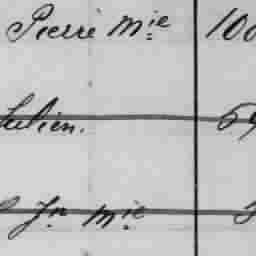 Pierre Mie 100
Julien. 6
Jn Mie